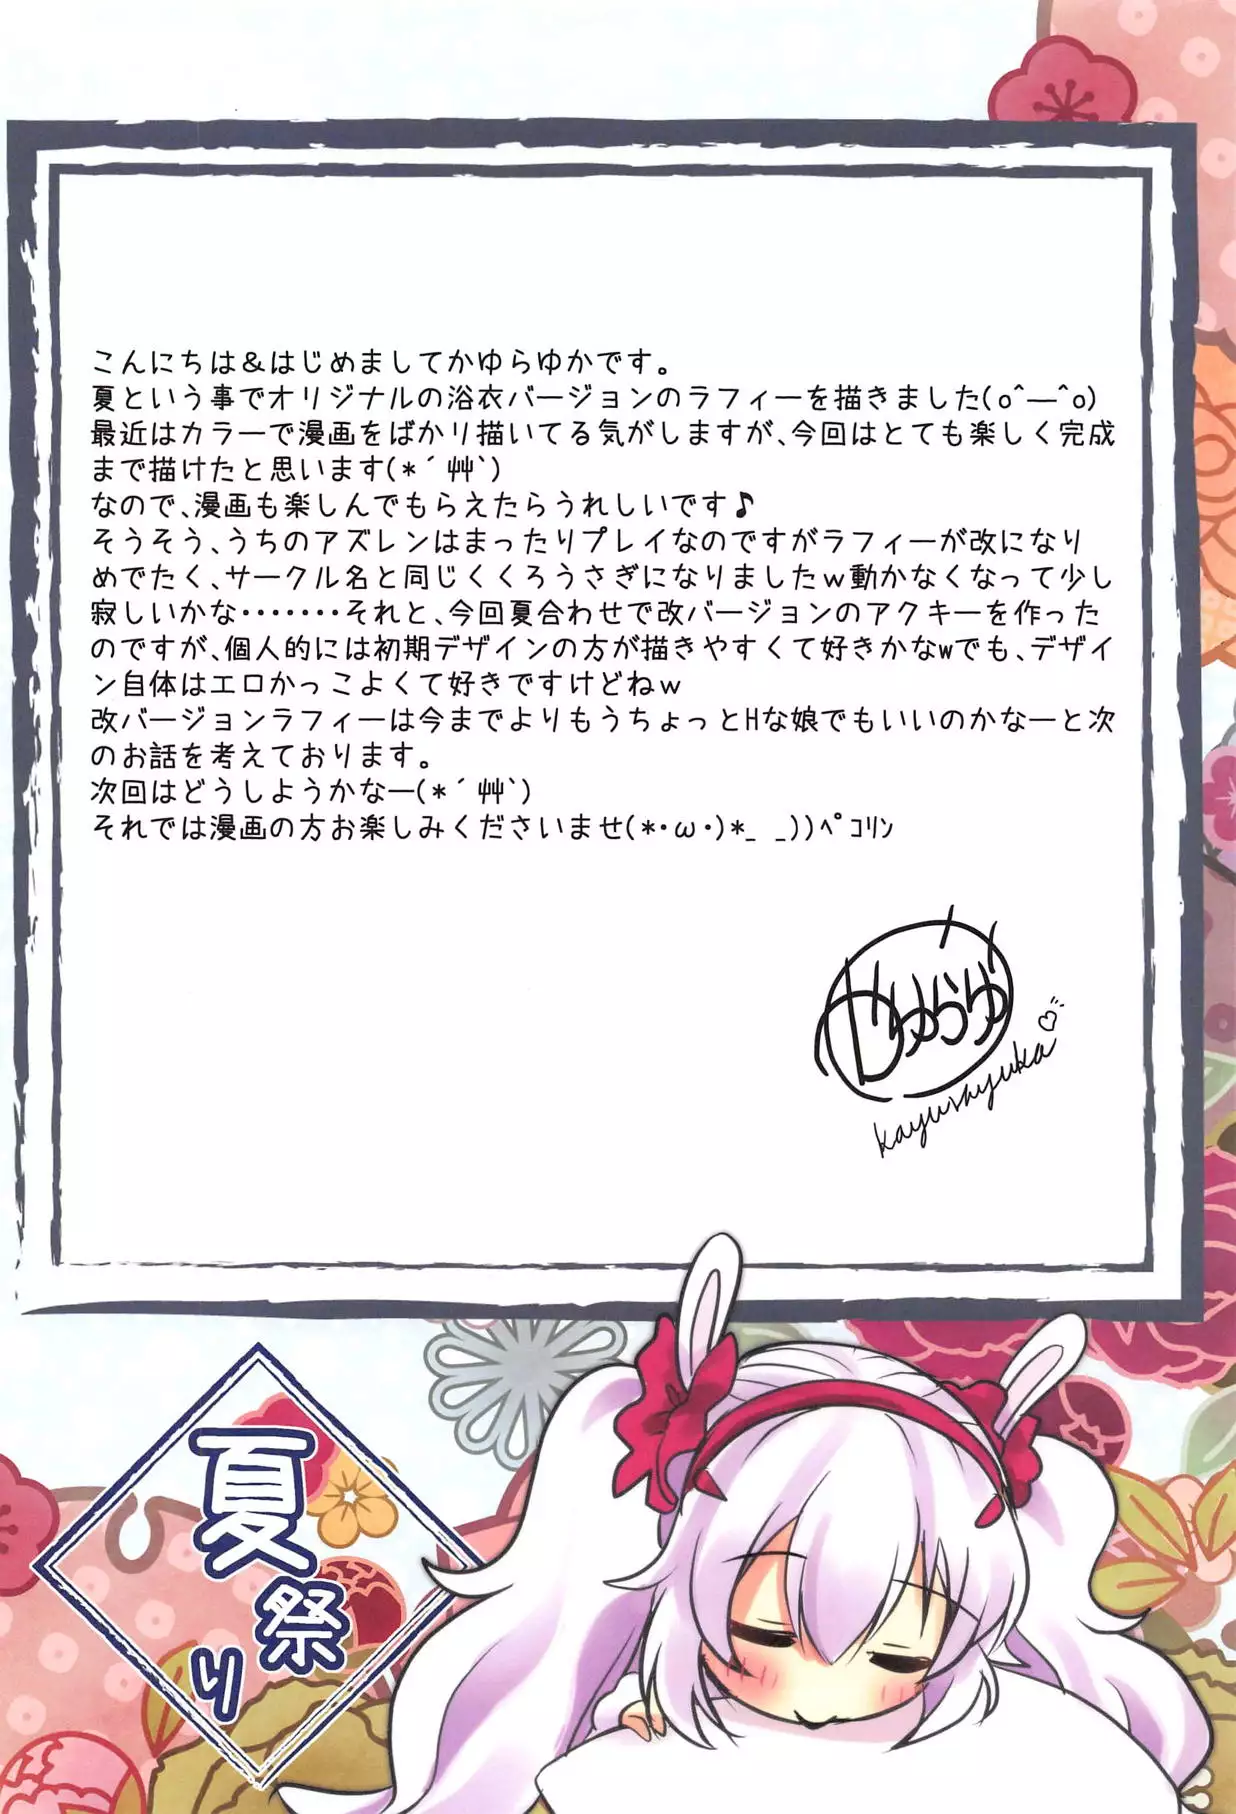 こんにちは&はじめましてかゆらゆかです。
夏という事でオリジナルの浴衣バージョンのラフィーを描きました(o^―^o)
最近はカラーで漫画をばかり描いてる気がしますが、今回はとても楽しく完成
まで描けたと思います(*´艸`)
なので、漫画も楽しんでもらえたらうれしいです♪
そうそう、うちのアズレンはまったりプレイなのですがラフィーが改になり
めでたく、サークル名と同じくくろうさぎになりましたｗ動かなくなって少し
寂しいかな・・・・・・・それと、今回夏合わせで改バージョンのアクキーを作った
のですが、個人的には初期デザインの方が描きやすくて好きかなwでも、デザイ
ン自体はエロかっこよくて好きですけどねｗ
改バージョンラフィーは今までよりもうちょっとHな娘でもいいのかなーと次
のお話を考えております。
次回はどうしようかなー(*´艸`)
それでは漫画の方お楽しみくださいませ(*・ω・)*_ _))ﾍﾟｺﾘﾝ
かゆらゆか
kayurayuka♡
夏祭り